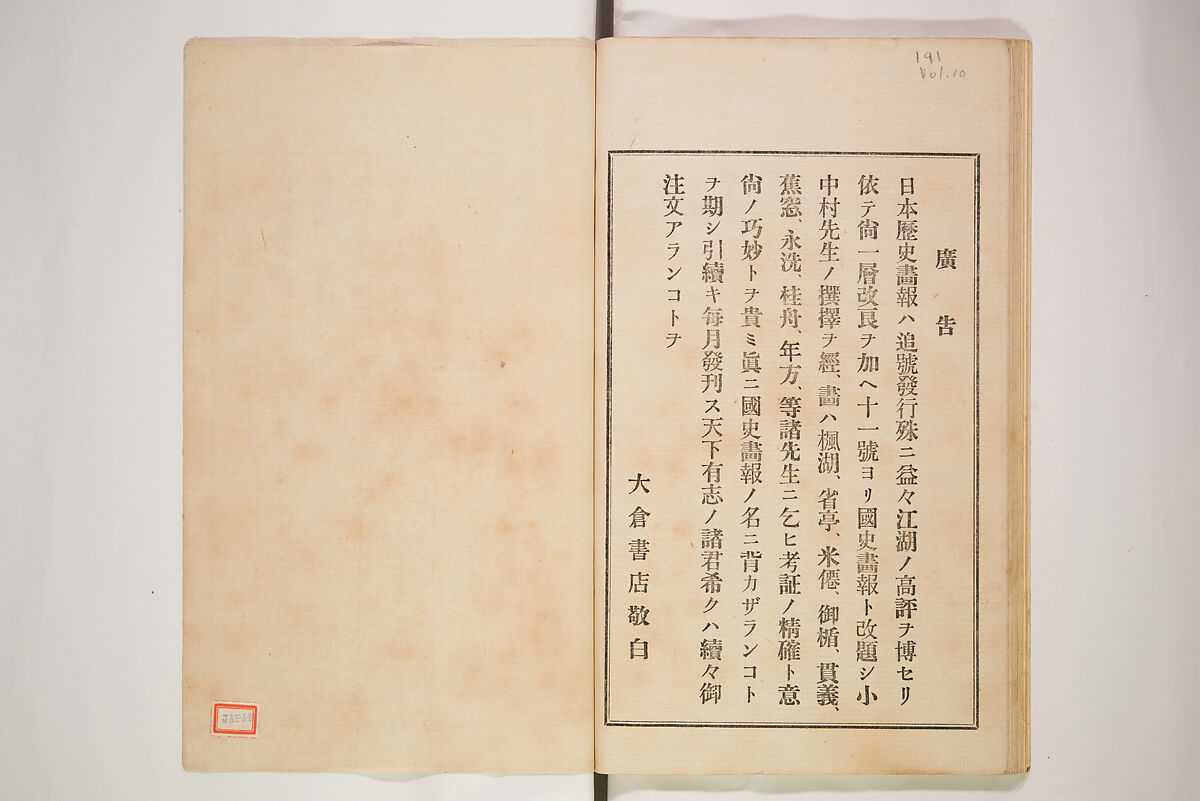 191
Vol.10
廣告
日本歷史畫報ハ追號發行殊ニ益々江湖ノ高評ヲ博セリ
依テ尙一層改良ヲ加ヘ十一號ヨリ國史畫報ト改題シ小
中村先生ノ撰擇ヲ經、畫ハ楓湖、省亭、米僊、御楯、貫義、
蕉窓、永洗、桂舟、年方、等諸先生ニ乞ヒ考証ノ精確ト意
尙ノ巧妙トヲ貴ミ眞ニ國史畫報ノ名ニ背カザランコト
ヲ期シ引續キ每月發刊ス天下有志ノ諸君希クハ續々御
注文アランコトヲ
大倉書店敬白
JAPAN